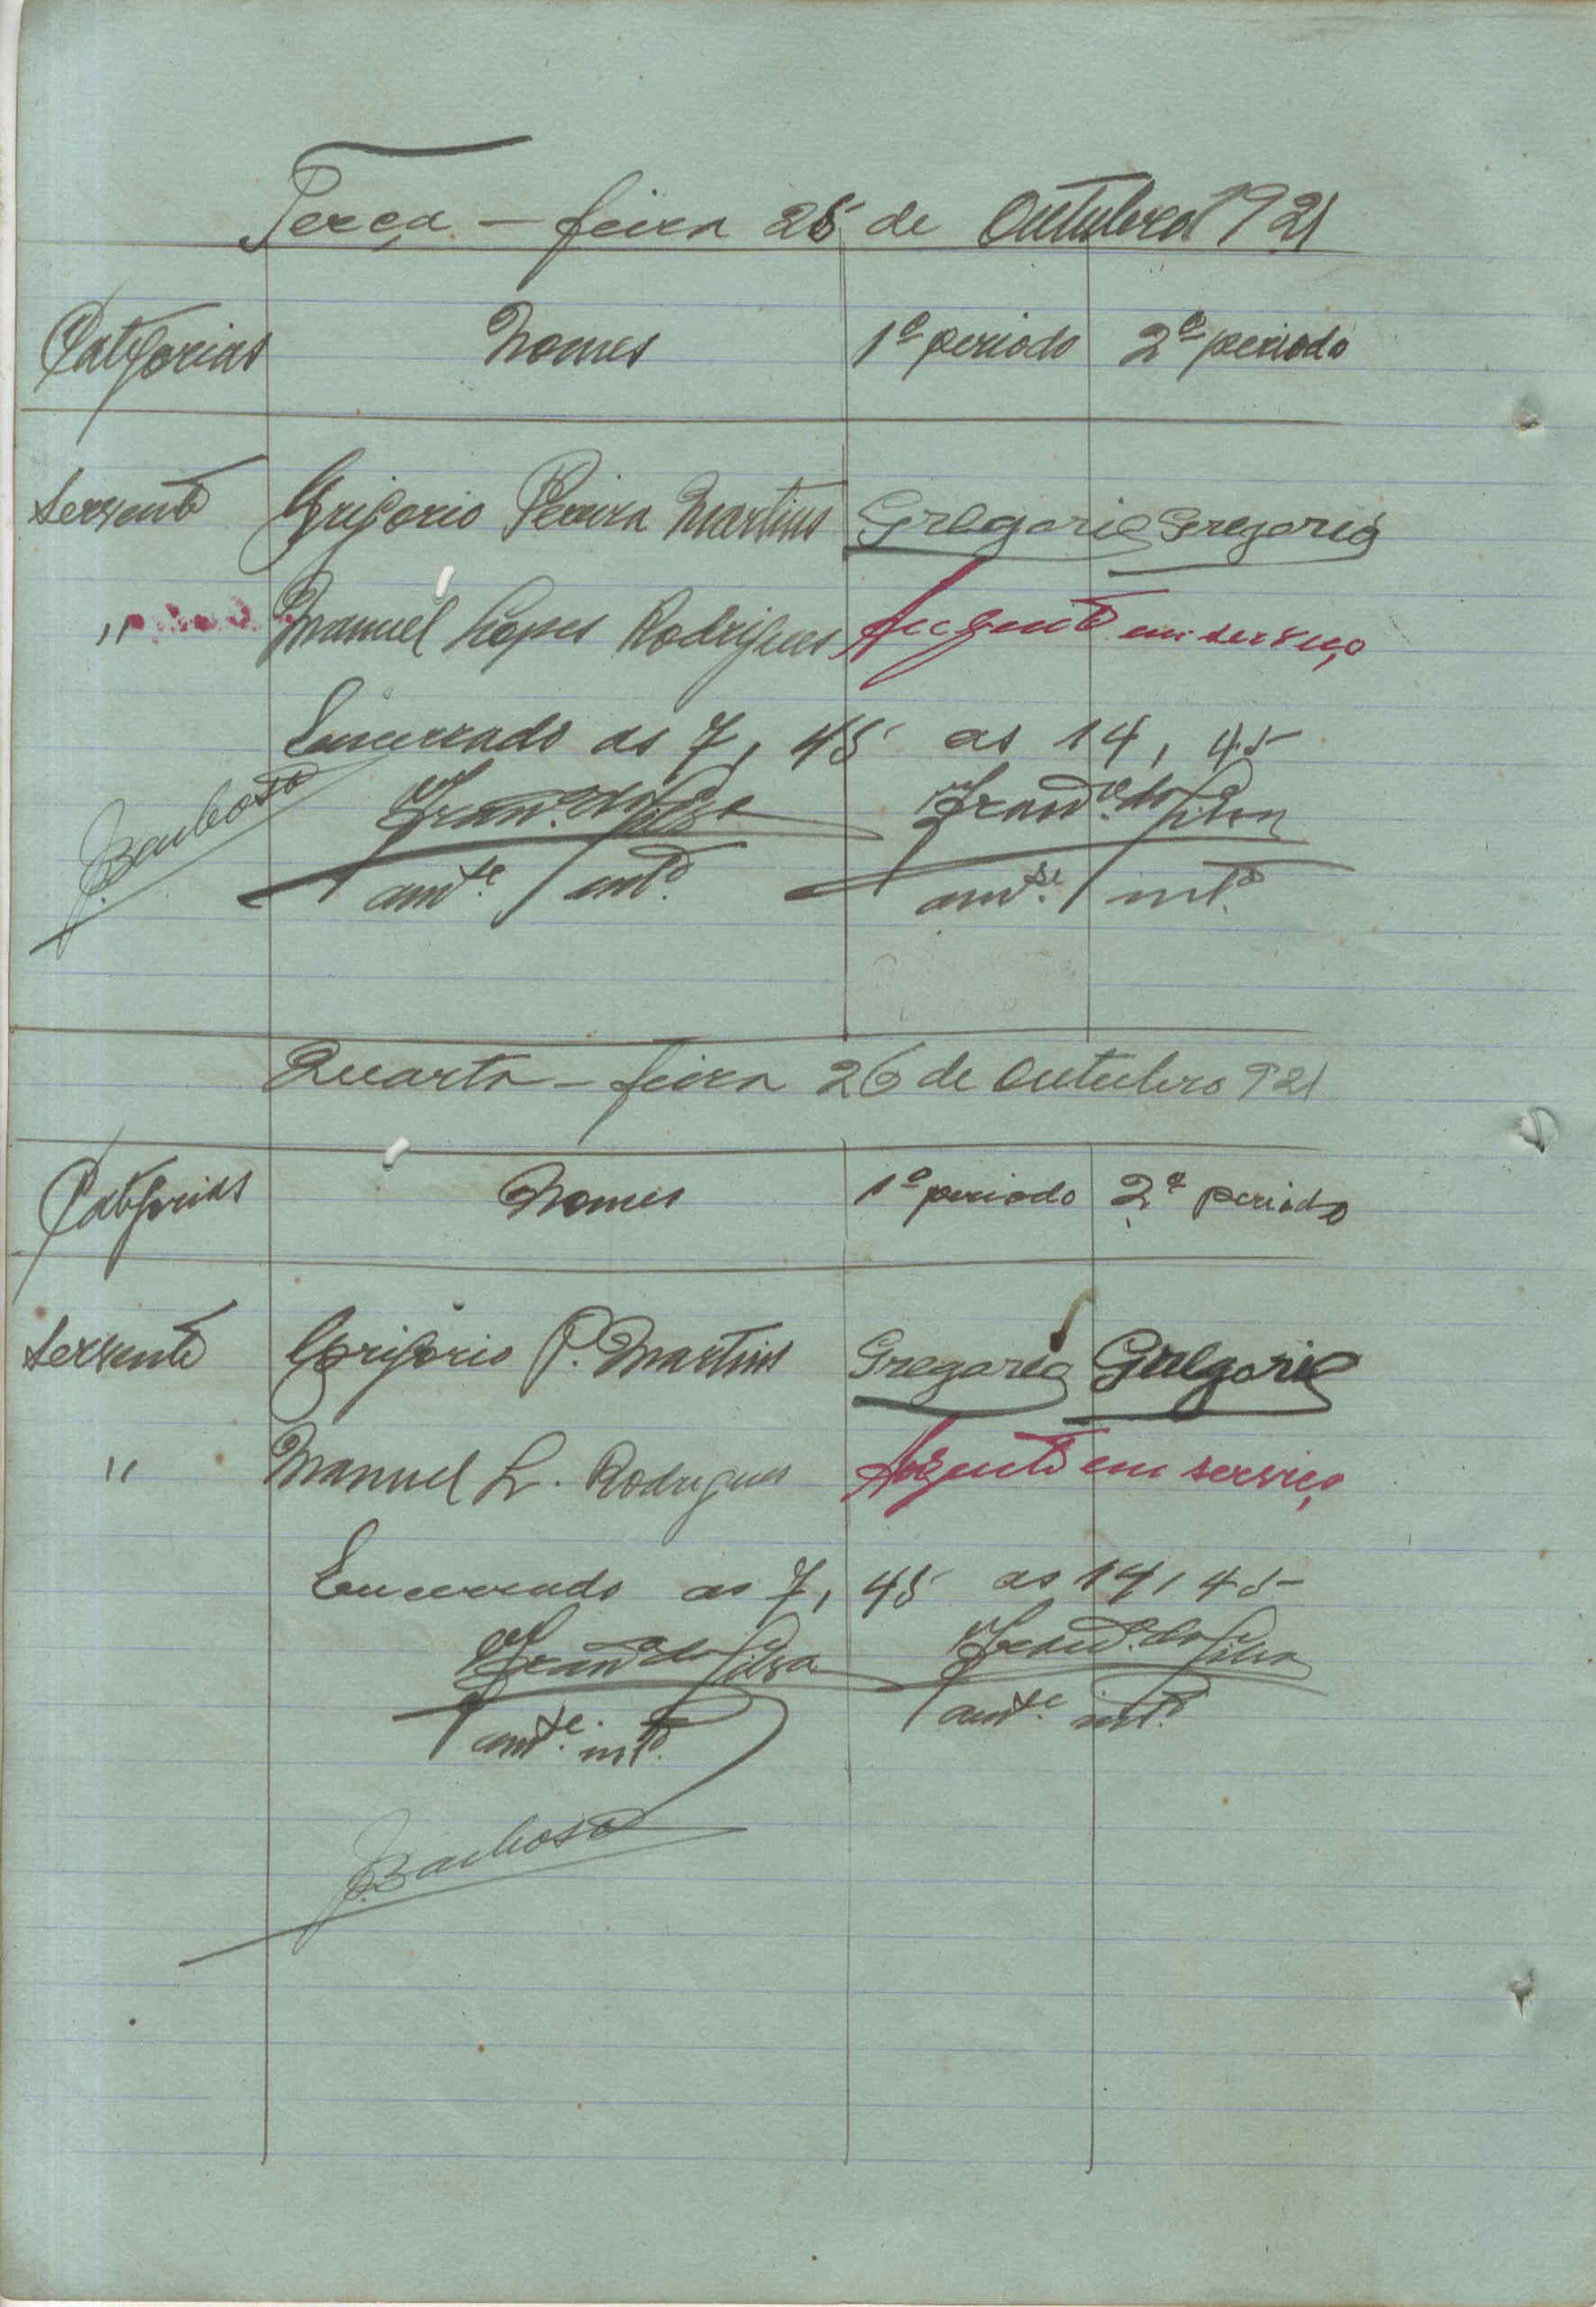 Terça - feira 25 de Outubro 1921
Categorias Nomes 1º periodo 2º periodo
Servente Grigorio Pereira Martins Gregorio Gregorio
" Manuel Lopes Rodrigues Auzente em serviço
Encerrado as 7, 45 as 14, 45
Franº da Silva Franº da Silva
J. Barbosa
amte. intº. amte. intº.
Quarta - feira 26 de Outubro 921
Categorias Nomes 1º periodo 2º periodo
Servente Grigorio P. Martins Gregorio Gregorio
" Manuel L. Rodrigues Auzente em serviço
Encerrado as 7, 45 as 14, 45
Franº da Silva Franº da Silva
amte. intº. amte. intº.
J. Barbosa